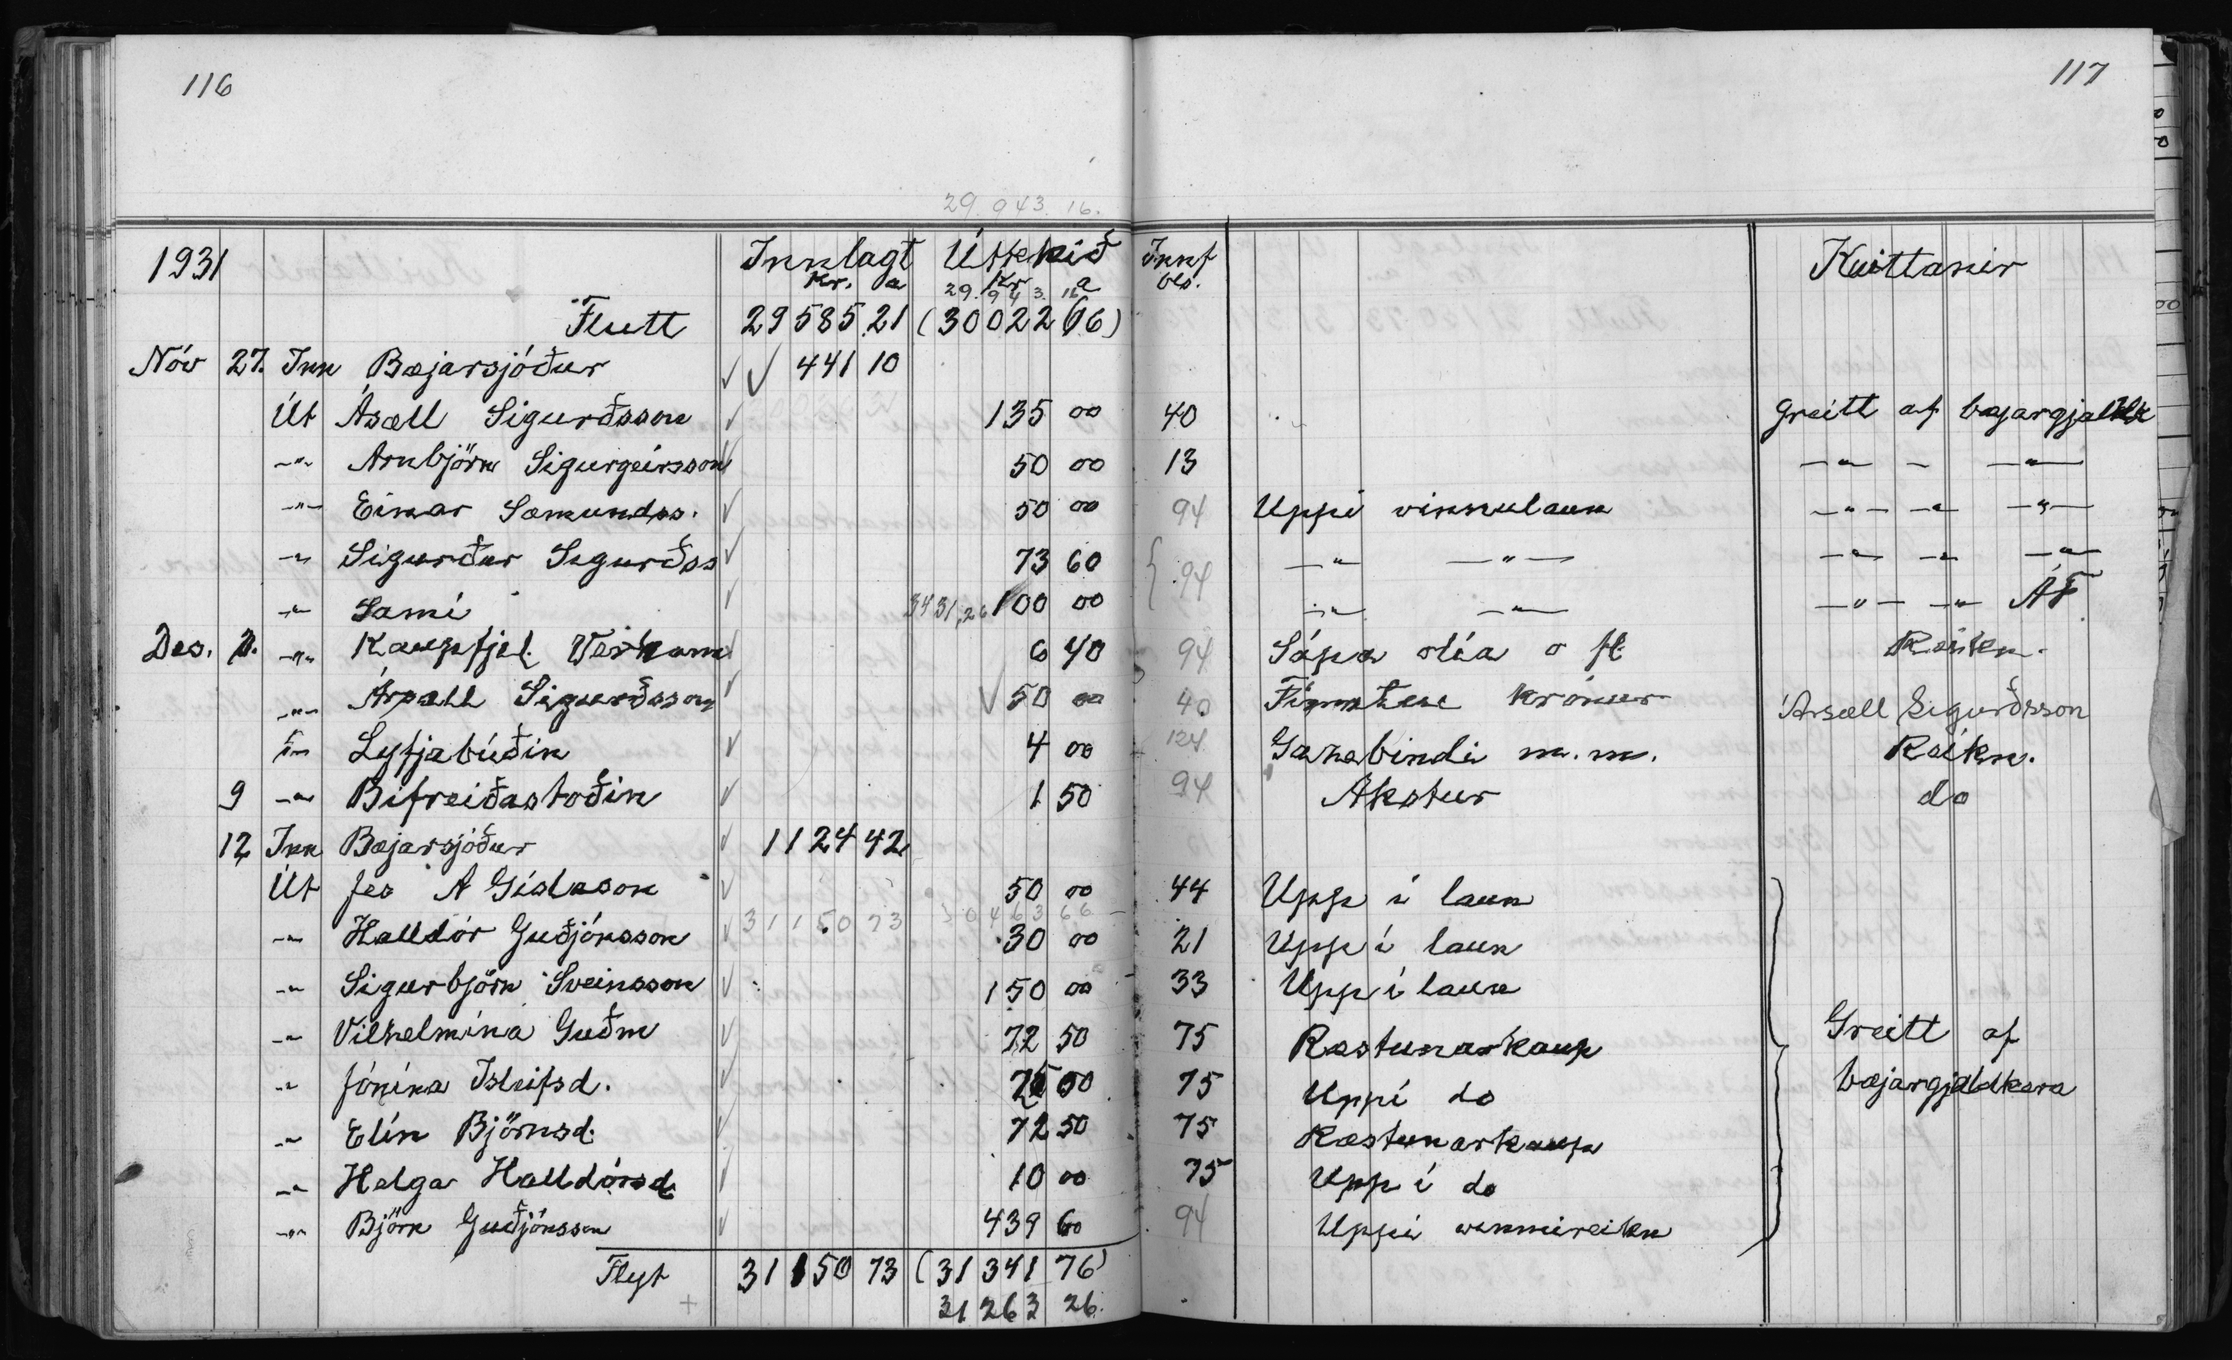 116
117
29.943.16.
1931 Innlagt Úttekið Innf Kvittanir
Kr. a Kr a bls.
29.943.16
Flutt 29585 21 (30022 66)
Nóv 27. Inn Bæjarsjóður 441 10
Út Ásæll Sigurðsson 135 00 40 Greitt af bæjargjaldk
-"- Arnbjörn Sigurgeirsson 50 00 13 -"- - -"-
-"- Einar Sæmundss. 50 00 94 Uppí vinnulaun -"- -"- -"-
-"- Sigurður Sigurðss 73 60 94 -"- -"- -"- -"- -"-
-"- Sami 100 00 -"- -"- -"- -"- ÁF
Des. 2. -"- Kaupfjel. Verkam 6 40 94 Sápa olía o fl Reikn.
-"- Ársæll Sigurðsson 50 00 40 Fimmtíu krónur Ársæll Sigurðsson
-"- Lyfjabúðin 4 00 124 Gazebindi m.m. Reikn.
9 -"- Bifreiðastoðin 1 50 94 Akstur do
12 Inn Bæjarsjóður 1124 42
Út Jes A Gíslason 50 00 44 Upp í laun
31150 73 30463 66
-"- Halldór Guðjónsson 30 00 21 Upp í laun
-"- Sigurbjörn Sveinsson 150 00 33 Upp í laun
-"- Vilhelmína Guðm 72 50 75 Ræstunarkaup Greitt af
-"- Jónína Ísleifsd. 75 00 75 Uppí do bæjargjaldkera
-"- Elín Björnsd. 72 50 75 Ræstunarkaup
-"- Helga Halldórsd 10 00 75 Upp í do
-"- Björn Guðjónsson 439 60 94 Uppí vinnureikn
Flyt 31150 73 (31341 76)
31263 26.